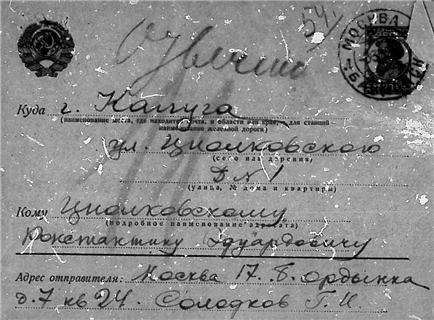 54
МОСКВА
Куда г. Калуга
(наименование места, где находится почта, и области или края, для станций
наименование железной дороги)
ул. Циолковского
(село или деревня)
Д № 1
(улица, № дома и квартиры)
Кому Циолковскому
(подробное наименование адресата)
Константину Эдуардовичу
Адрес отправителя: Москва 17. Б. Ордынка
д. 7 кв 24. Солодков Г. И.